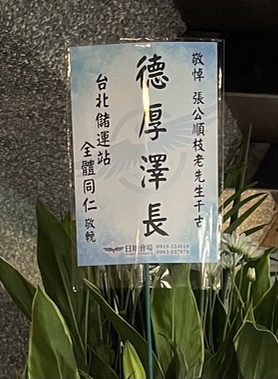 敬悼 張公順枝老先生千古
德厚澤長
台北儲運站
全體同仁 敬輓
日新會場